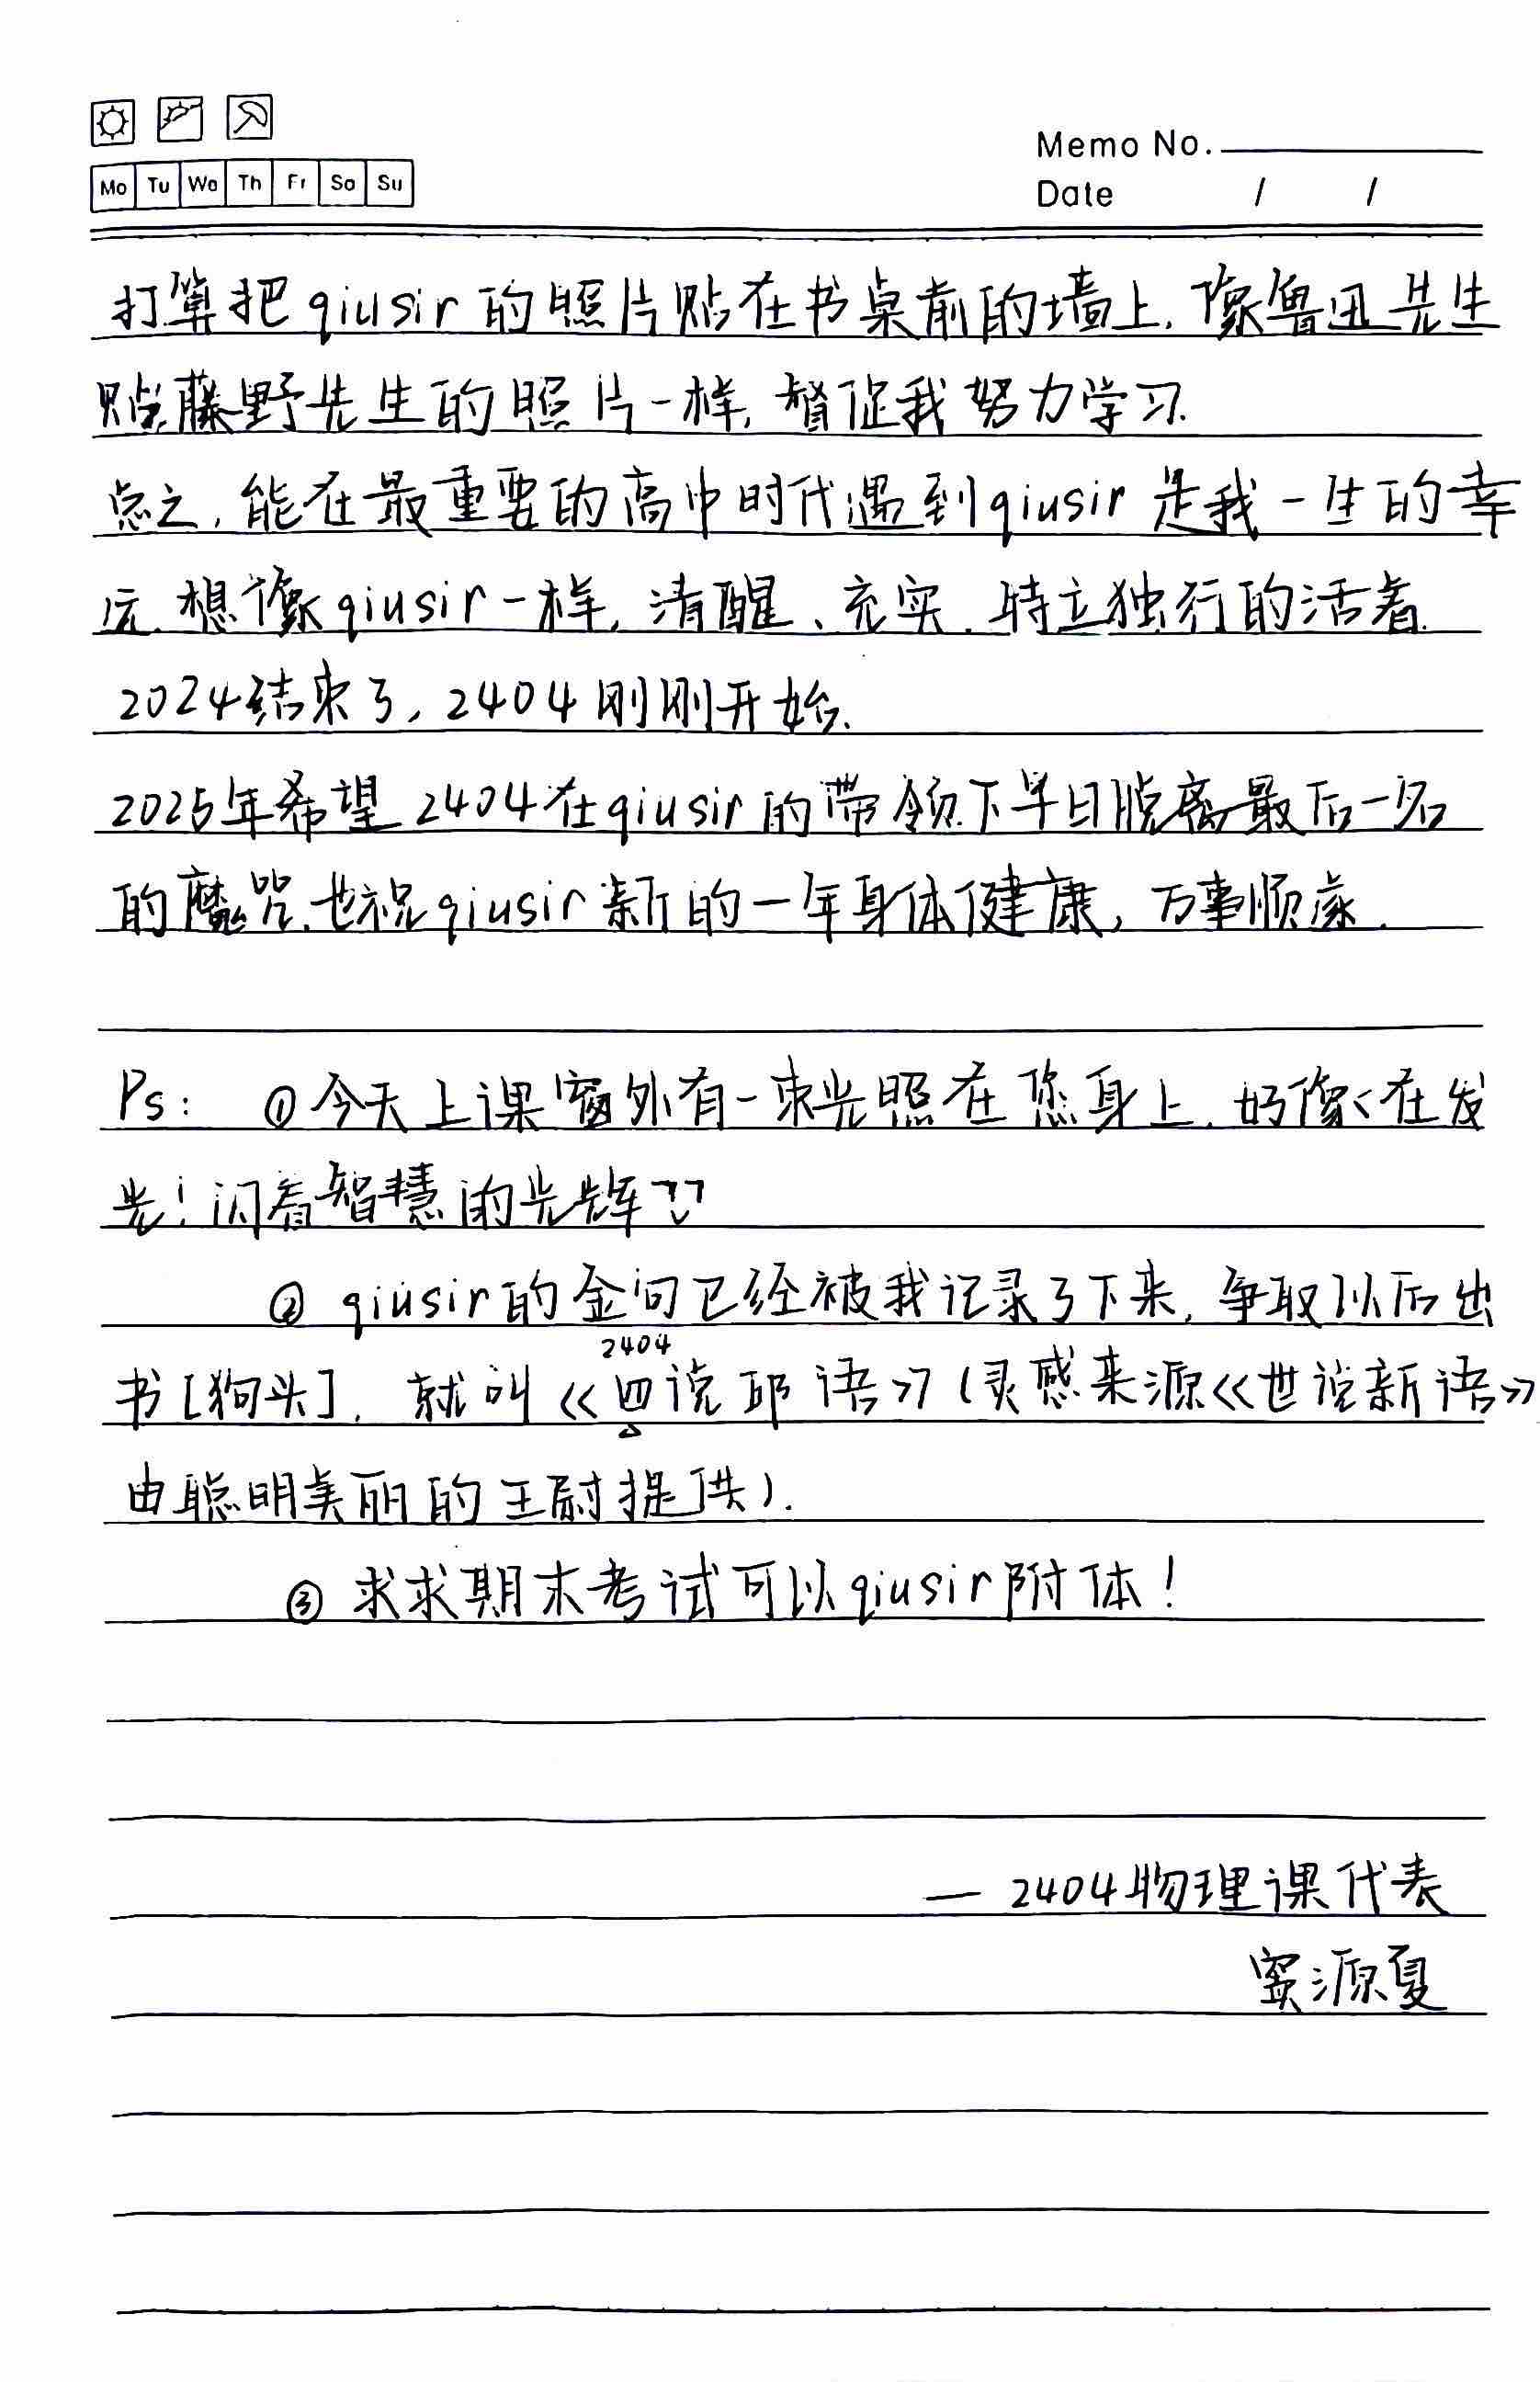 Memo No.
Mo Tu We Th Fr Sa Su
Date / /
打算把qiusir的照片贴在书桌前的墙上,像鲁迅先生
贴藤野先生的照片一样,督促我努力学习.
总之,能在最重要的高中时代遇到qiusir是我一生的幸
运.想像qiusir一样,清醒、充实、特立独行的活着.
2024结束了,2404刚刚开始.
2025年希望2404在qiusir的带领下早日脱离最后一名
的魔咒.也祝qiusir新的一年身体健康,万事顺遂.
Ps: ①今天上课窗外有一束光照在您身上,好像在发
光!闪着智慧的光辉
②qiusir的金句已经被我记录了下来,争取以后出
2404
书[狗头],就叫《四说邱语》(灵感来源《世说新语》
由聪明美丽的王尉提供).
③求求期末考试可以qiusir附体!
—2404物理课代表
蜜源夏